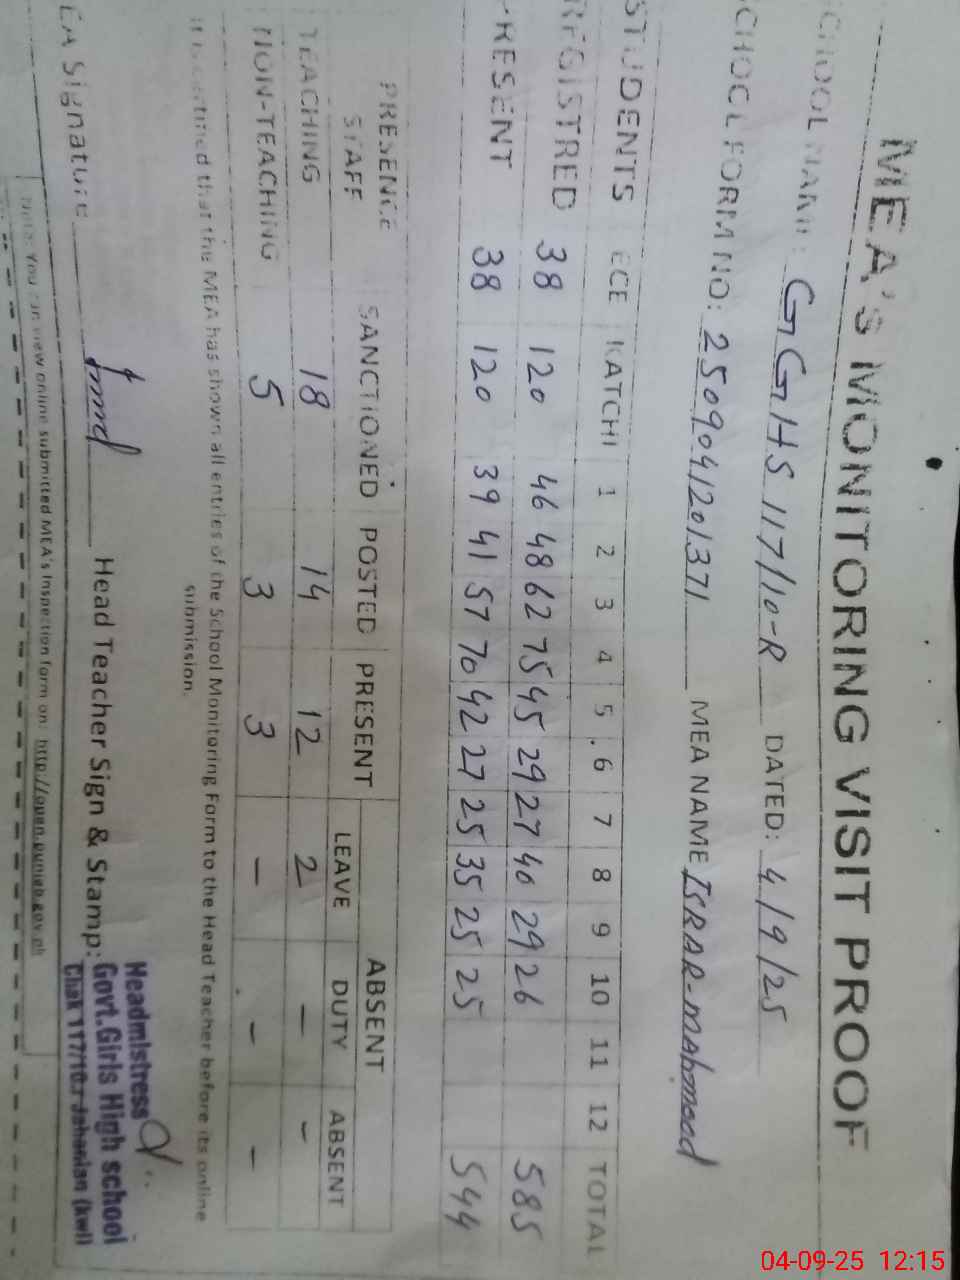 MEA'S MONITORING VISIT PROOF
SCHOOL NAME: GGHS 117/10-R DATED: 4/9/25
SCHOOL FORM NO: 2509041201371 MEA NAME ISRAR-Mahmood
STUDENTS ECE KATCHI 1 2 3 4 5 6 7 8 9 10 11 12 TOTAL
REGISTRED 38 120 46 48 62 75 45 29 27 40 29 26 585
PRESENT 38 120 39 41 57 70 42 27 25 35 25 25 544
PRESENCE STAFF SANCTIONED POSTED PRESENT ABSENT
LEAVE DUTY ABSENT
TEACHING 18 14 12 2 - -
NON-TEACHING 5 3 3 - - -
It is certified that the MEA has shown all entries of the School Monitoring Form to the Head Teacher before its online
submission.
MEA Signature Head Teacher Sign & Stamp:
Headmistress
Govt.Girls High school
Chak 117/10.r Jahanian (kwl)
Note: You can view online submitted MEA's Inspection form on: http://open.punjab.gov.pk
04-09-25 12:15